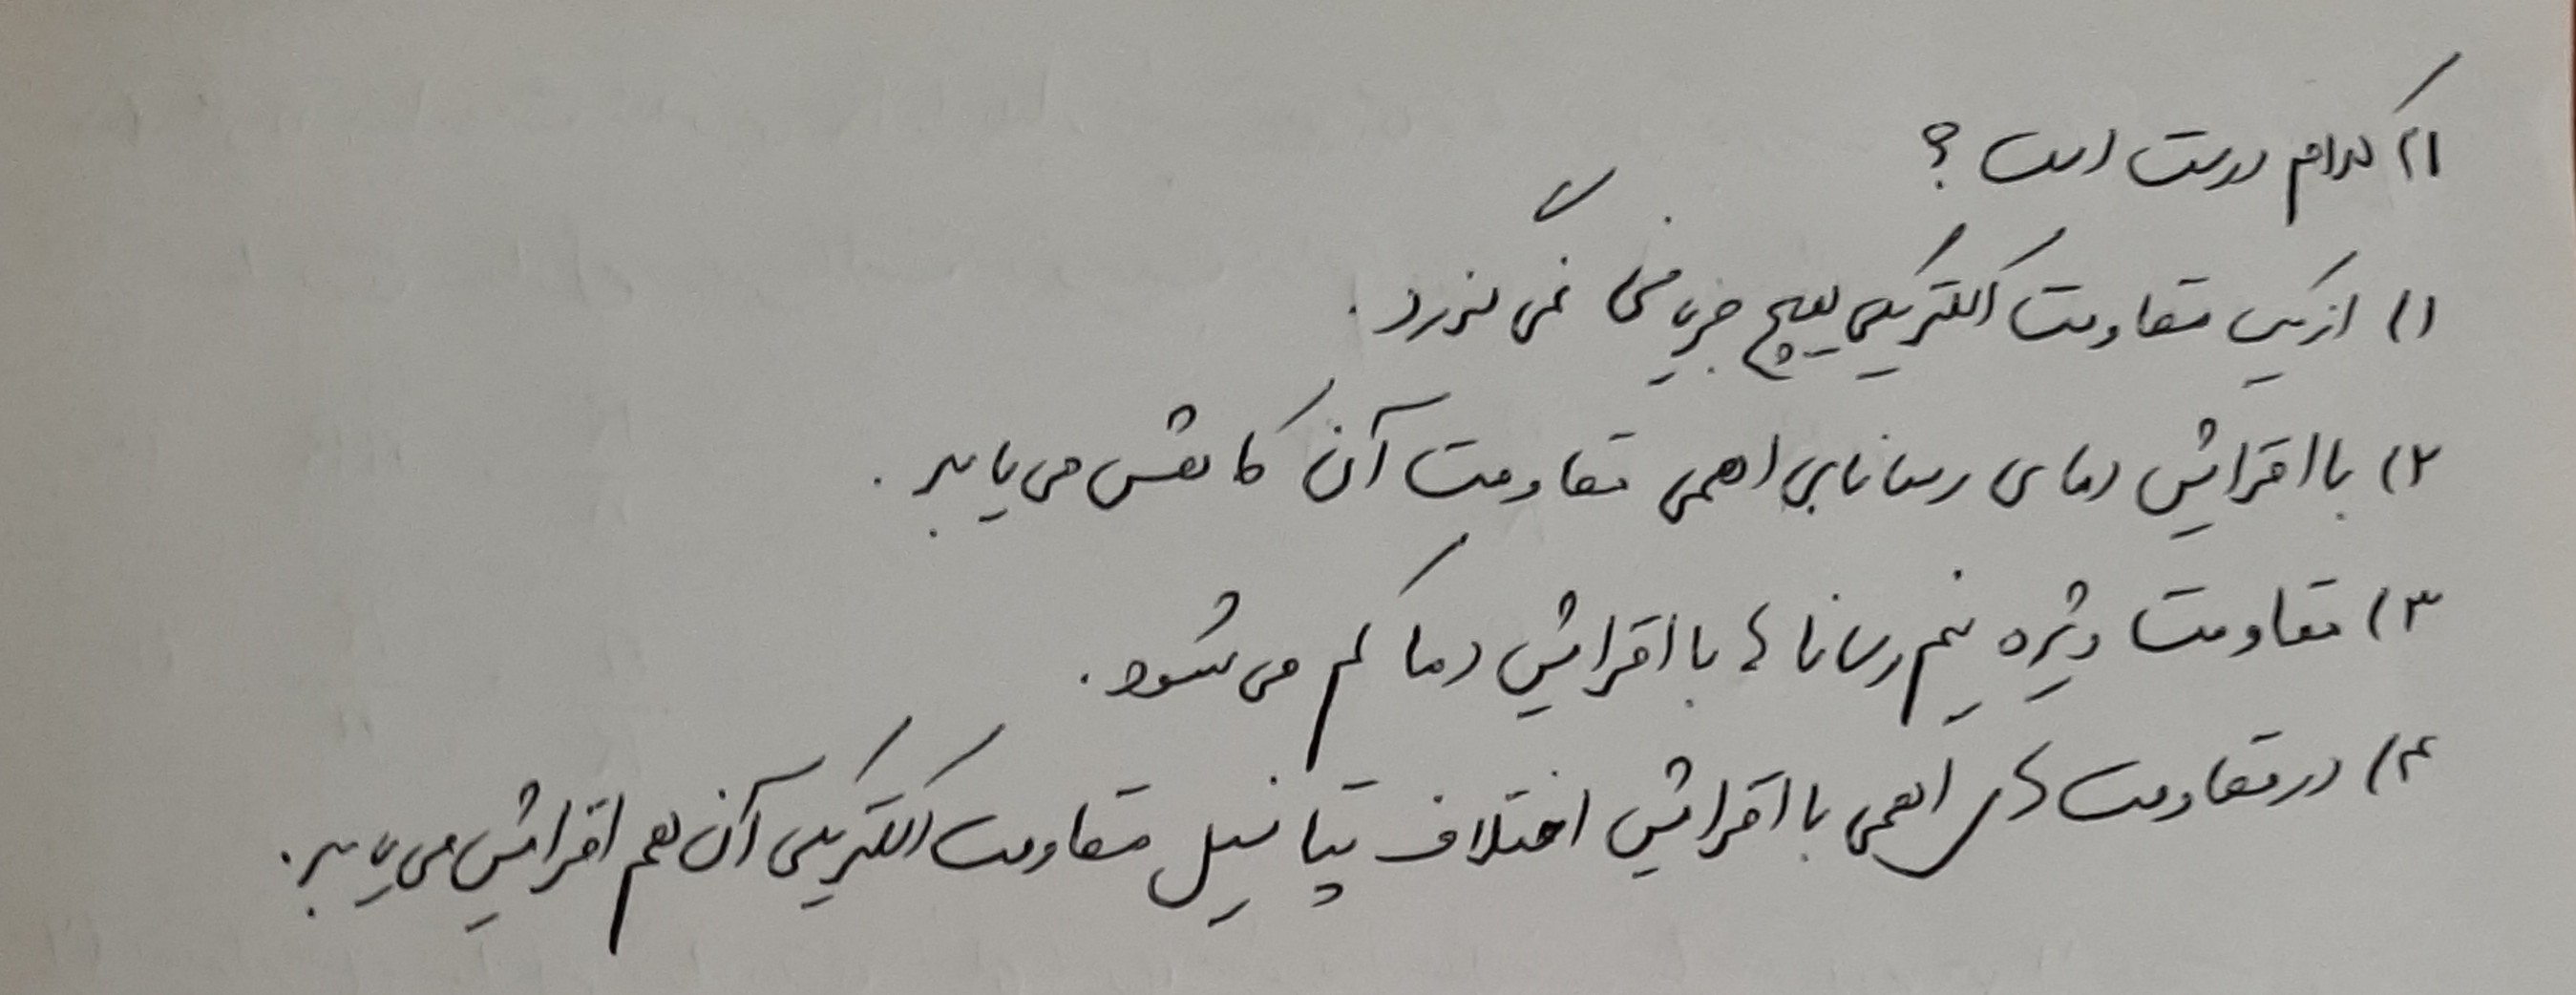 ۲۱) کدام درست است؟
۱) از یک مقاومت الکتریکی هیچ جریانی نمی گذرد.
۲) با افزایش دمای رسانای اهمی مقاومت آن کاهش می یابد.
۳) مقاومت ویژه نیم رسانا ها با افزایش دما کم می شود.
۴) در مقاومت های اهمی با افزایش اختلاف پتانسیل مقاومت الکتریکی آن هم افزایش می یابد.